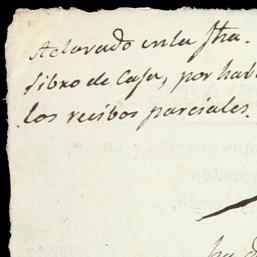 Aclarado en la fha.
libro de Casa, por hab
los recibos parciales.